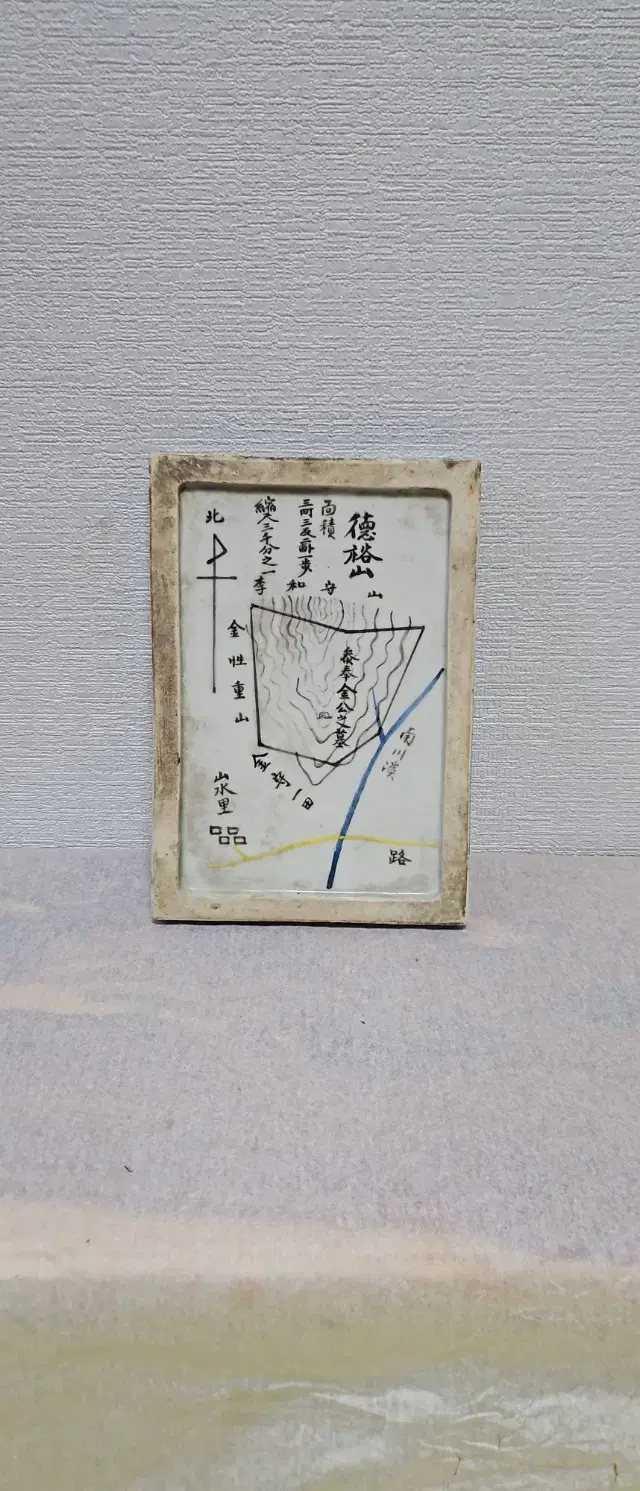 德裕山
面積
三町三反一畝步
縮尺三千分之一
北
李和守山
金性重山
參奉金公之墓
南川溪
山水里
路